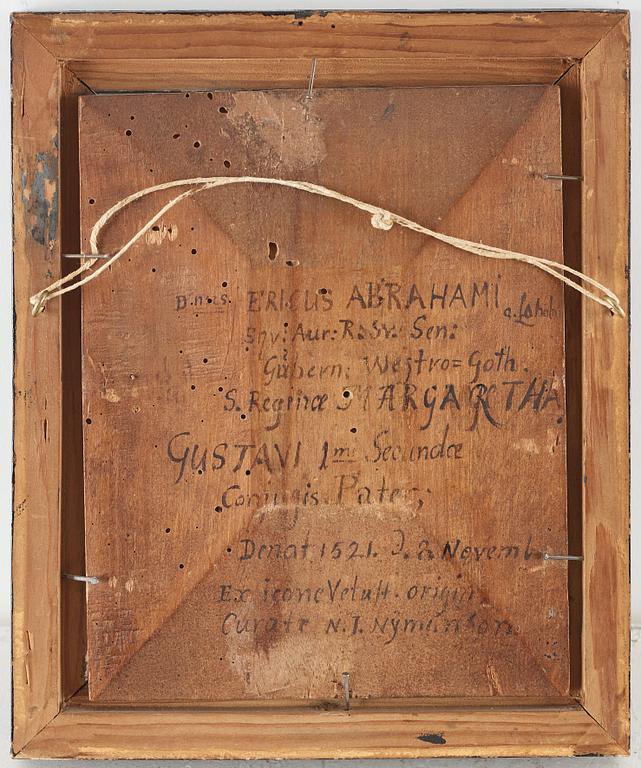 D.n.s. ERICUS ABRAHAMI a. Loholm
Eqv: Aur: R:Sv: Sen:
Gubern: Westro=Goth.
S. Reginæ MARGARETHA
GUSTAVI 1mi Secundæ
Conjugis Pater;
Denat. 1521. d. 2. Novemb.
Ex icone Vetust. origin.
Curate N. J. Nÿmanson.